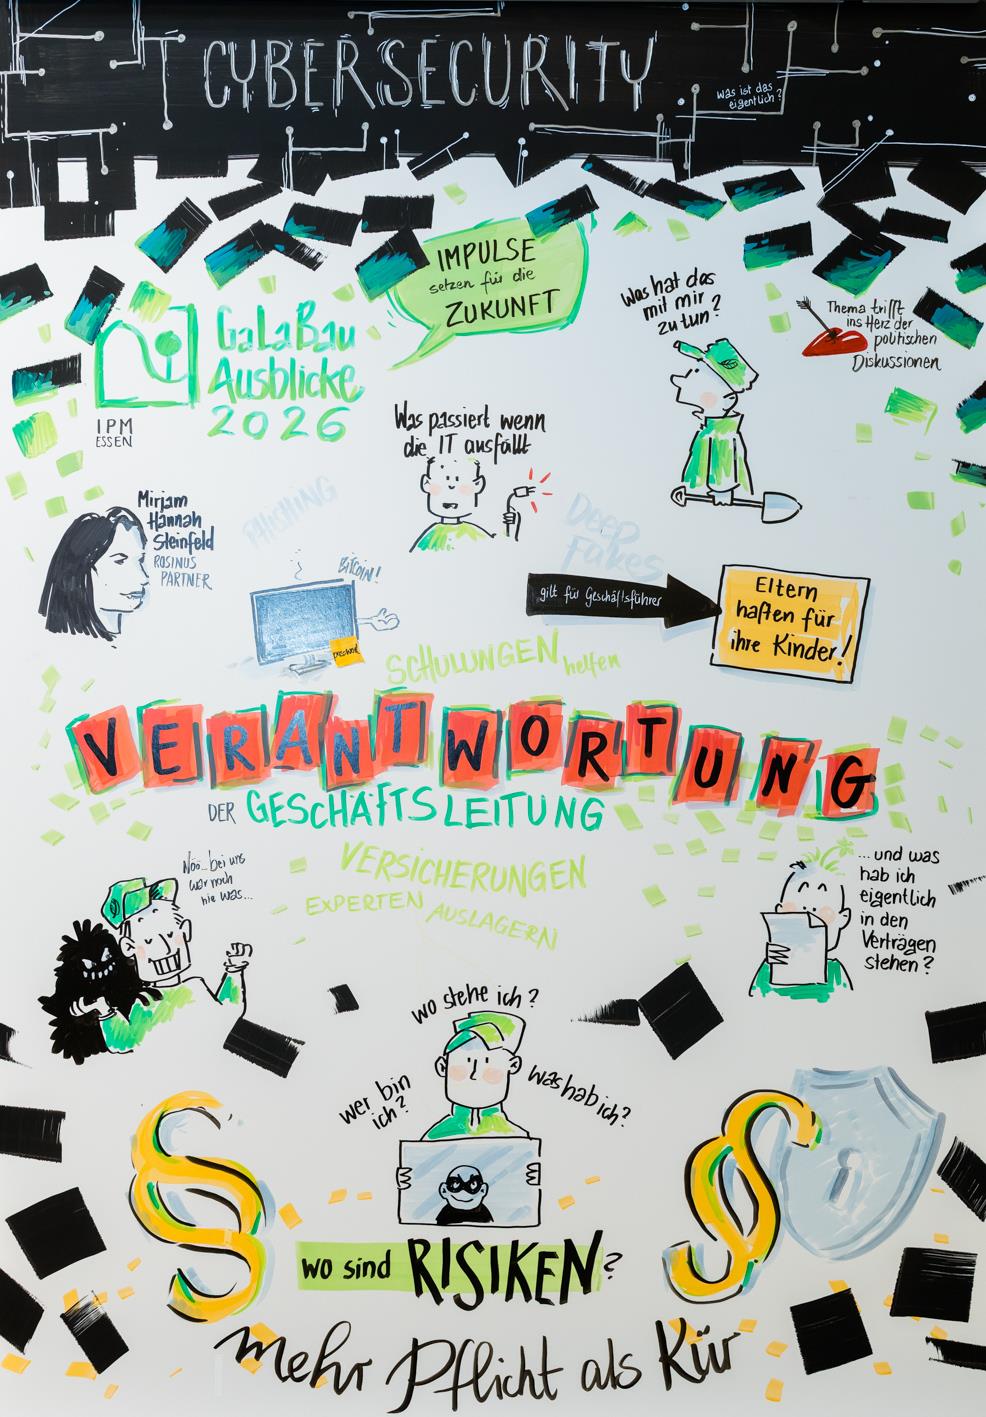 CYBERSECURITY
Was ist das
eigentlich?
IMPULSE
setzen für die
ZUKUNFT
Was hat das
mit mir
zu tun?
Thema trifft
ins Herz der
politischen
Diskussionen
GaLaBau
Ausblicke
2026
IPM
ESSEN
Was passiert wenn
die IT ausfällt
Mirjam
Hannah
Steinfeld
ROSINUS
PARTNER
PHISHING
BITCOIN!
DEEP
Fakes
gilt für Geschäftsführer
Eltern
haften für
ihre Kinder!
SCHULUNGEN helfen
VERANTWORTUNG
DER GESCHÄFTSLEITUNG
VERSICHERUNGEN
EXPERTEN AUSLAGERN
Nöö... bei uns
war noch
nie was...
...und was
hab ich
eigentlich
in den
Verträgen
stehen?
wo stehe ich?
wer bin
ich?
was hab ich?
wo sind RISIKEN?
mehr Pflicht als Kür